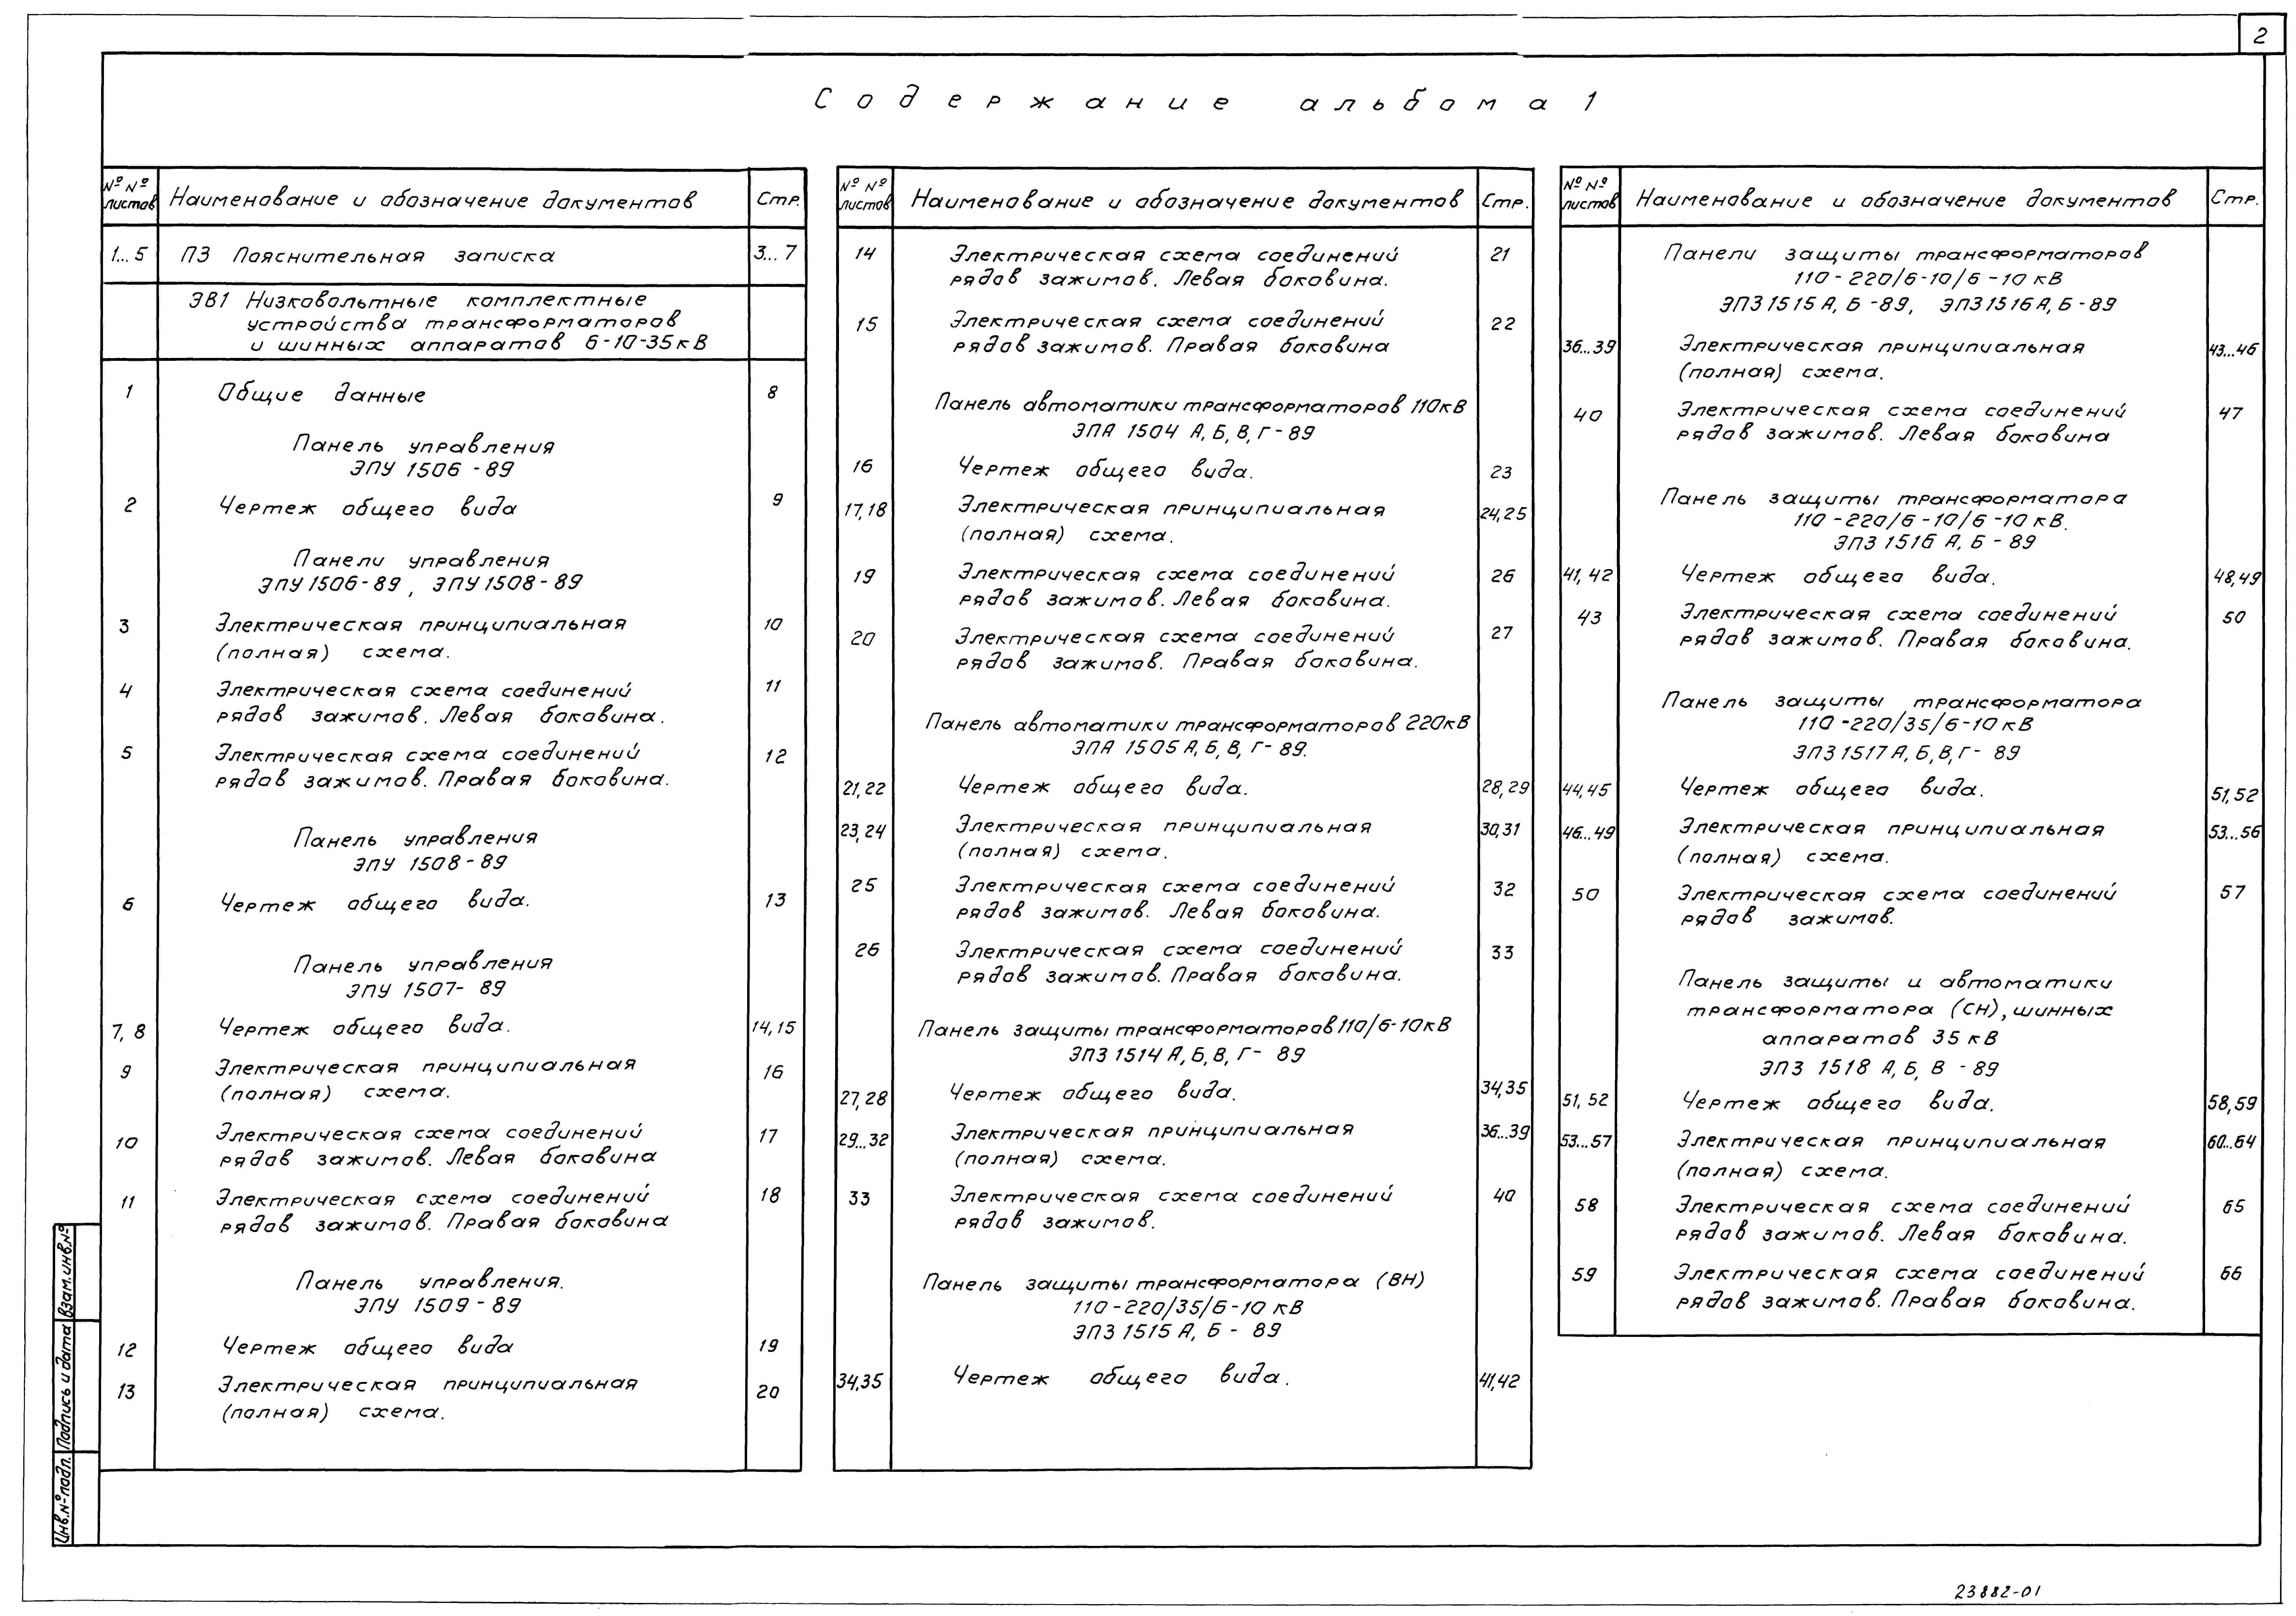 2
Содержание альбома 1
№ № листов Наименование и обозначение документов Стр.
1...5 ПЗ Пояснительная записка 3...7
ЭВ1 Низковольтные комплектные
устройства трансформаторов
и шинных аппаратов 6-10-35кВ
1 Общие данные 8
Панель управления
ЭПУ 1506-89
2 Чертеж общего вида 9
Панели управления
ЭПУ 1506-89, ЭПУ 1508-89
3 Электрическая принципиальная 10
(полная) схема.
4 Электрическая схема соединений 11
рядов зажимов. Левая боковина.
5 Электрическая схема соединений 12
рядов зажимов. Правая боковина.
Панель управления
ЭПУ 1508-89
6 Чертеж общего вида. 13
Панель управления
ЭПУ 1507-89
7, 8 Чертеж общего вида. 14,15
9 Электрическая принципиальная 16
(полная) схема.
10 Электрическая схема соединений 17
рядов зажимов. Левая боковина
11 Электрическая схема соединений 18
рядов зажимов. Правая боковина
Панель управления.
ЭПУ 1509-89
12 Чертеж общего вида 19
13 Электрическая принципиальная 20
(полная) схема.
№ № листов Наименование и обозначение документов Стр.
14 Электрическая схема соединений 21
рядов зажимов. Левая боковина.
15 Электрическая схема соединений 22
рядов зажимов. Правая боковина
Панель автоматики трансформаторов 110кВ
ЭПА 1504 А, Б, В, Г-89
16 Чертеж общего вида. 23
17,18 Электрическая принципиальная 24,25
(полная) схема.
19 Электрическая схема соединений 26
рядов зажимов. Левая боковина.
20 Электрическая схема соединений 27
рядов зажимов. Правая боковина.
Панель автоматики трансформаторов 220кВ
ЭПА 1505 А, Б, В, Г-89.
21,22 Чертеж общего вида. 28,29
23,24 Электрическая принципиальная 30,31
(полная) схема.
25 Электрическая схема соединений 32
рядов зажимов. Левая боковина.
26 Электрическая схема соединений 33
рядов зажимов. Правая боковина.
Панель защиты трансформаторов 110/6-10кВ
ЭПЗ 1514 А, Б, В, Г-89
27,28 Чертеж общего вида. 34,35
29...32 Электрическая принципиальная 36...39
(полная) схема.
33 Электрическая схема соединений 40
рядов зажимов.
Панель защиты трансформатора (ВН)
110-220/35/6-10 кВ
ЭПЗ 1515 А, Б - 89
34,35 Чертеж общего вида. 41,42
№ № листов Наименование и обозначение документов Стр.
Панели защиты трансформаторов
110-220/6-10/6-10 кВ
ЭПЗ 1515 А, Б -89, ЭПЗ 1516 А, Б-89
36...39 Электрическая принципиальная 43...46
(полная) схема.
40 Электрическая схема соединений 47
рядов зажимов. Левая боковина
Панель защиты трансформатора
110-220/6-10/6-10 кВ.
ЭПЗ 1516 А, Б - 89
41, 42 Чертеж общего вида. 48,49
43 Электрическая схема соединений 50
рядов зажимов. Правая боковина.
Панель защиты трансформатора
110-220/35/6-10 кВ
ЭПЗ 1517 А, Б, В, Г- 89
44,45 Чертеж общего вида. 51,52
46...49 Электрическая принципиальная 53...56
(полная) схема.
50 Электрическая схема соединений 57
рядов зажимов.
Панель защиты и автоматики
трансформатора (СН), шинных
аппаратов 35 кВ
ЭПЗ 1518 А, Б, В - 89
51, 52 Чертеж общего вида. 58,59
53...57 Электрическая принципиальная 60...64
(полная) схема.
58 Электрическая схема соединений 65
рядов зажимов. Левая боковина.
59 Электрическая схема соединений 66
рядов зажимов. Правая боковина.
Инв.№ подл. Подпись и дата Взам.инв.№
23882-01